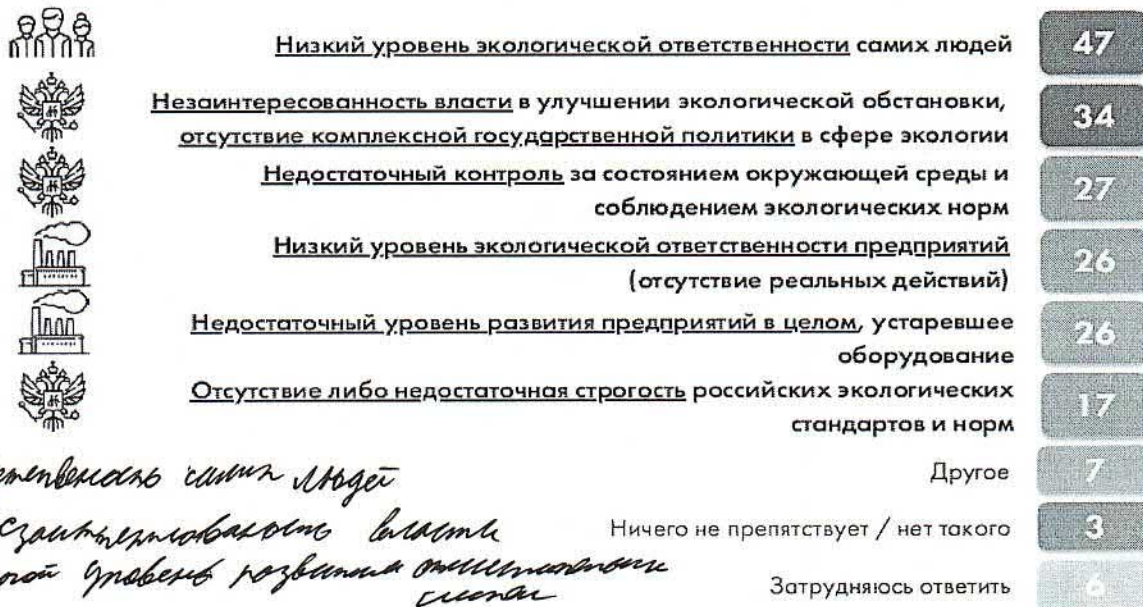 Низкий уровень экологической ответственности самих людей 47
Незаинтересованность власти в улучшении экологической обстановки,
отсутствие комплексной государственной политики в сфере экологии 34
Недостаточный контроль за состоянием окружающей среды и
соблюдением экологических норм 27
Низкий уровень экологической ответственности предприятий
(отсутствие реальных действий) 26
Недостаточный уровень развития предприятий в целом, устаревшее
оборудование 26
Отсутствие либо недостаточная строгость российских экологических
стандартов и норм 17
Другое 7
Ничего не препятствует / нет такого 3
Затрудняюсь ответить 6
самих людей
власти
уровень развития